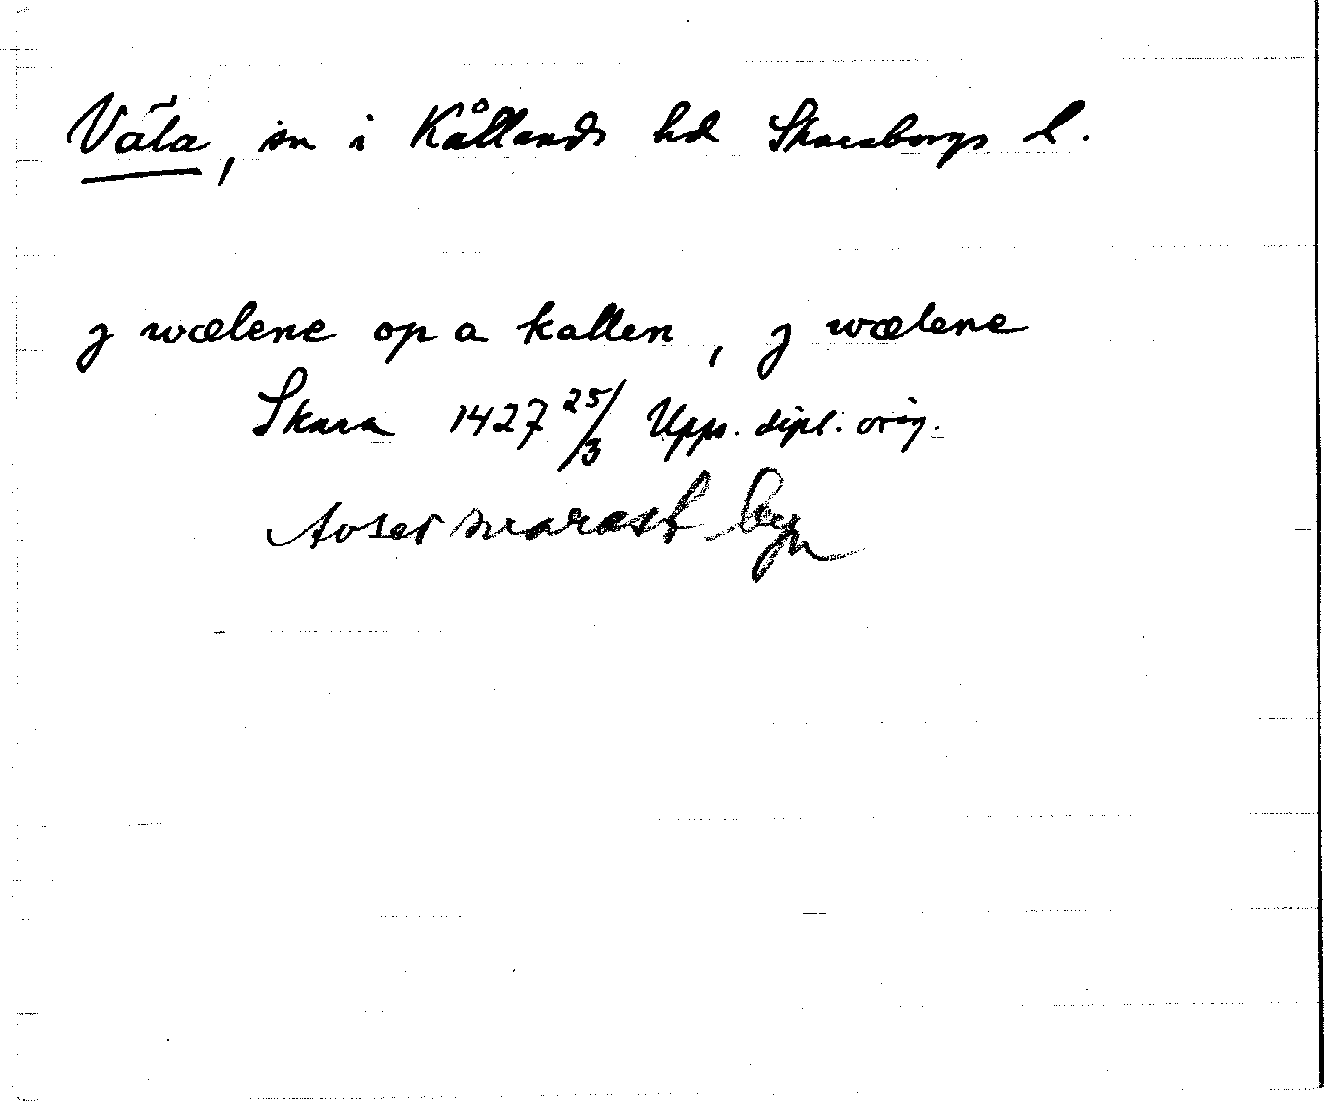 Väla, sn i Kållands hd Skaraborgs L.
j wælene op a kallen, j wælene
Skara 1427 25/3 Upps. dipl. orig.
Avser snarast byn